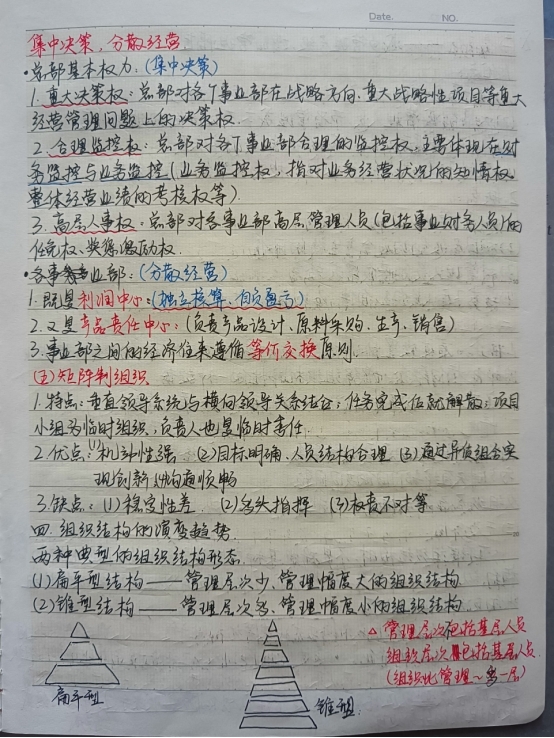 Date. NO.
集中决策,分散经营
·总部基本权力:(集中决策)
1.重大决策权:总部对各个事业部在战略方向、重大战略性项目等重大
经营管理问题上的决策权.
2.合理监控权:总部对各个事业部合理的监控权,主要体现在财
务监控与业务监控(业务监控权,指对业务经营状况的知情权、
整体经营业绩的考核权等)
3.高层人事权:总部对各事业部高层管理人员(包括事业财务人员)的
任免权、奖惩激励权.
·各事业部:(分散经营)
1.既是利润中心:(独立核算、自负盈亏)
2.又是产品责任中心:(负责产品设计、原料采购、生产、销售)
3.事业部之间的经济往来遵循等价交换原则.
(五)矩阵制组织
1.特点:垂直领导系统与横向领导关系结合;任务完成后就解散;项目
小组为临时组织,负责人也是临时责任.
2.优点:(1)机动性强 (2)目标明确、人员结构合理 (3)通过异质组合实
现创新 沟通顺畅
3.缺点:(1)稳定性差 (2)多头指挥 (3)权责不对等
四.组织结构的演变趋势
两种典型的组织结构形态
(1)扁平型结构——管理层次少、管理幅度大的组织结构
(2)锥型结构——管理层次多、管理幅度小的组织结构
△管理层次包括基层人员
组织层次包括基层人员
(组织比管理~多一层)
扁平型
锥型.